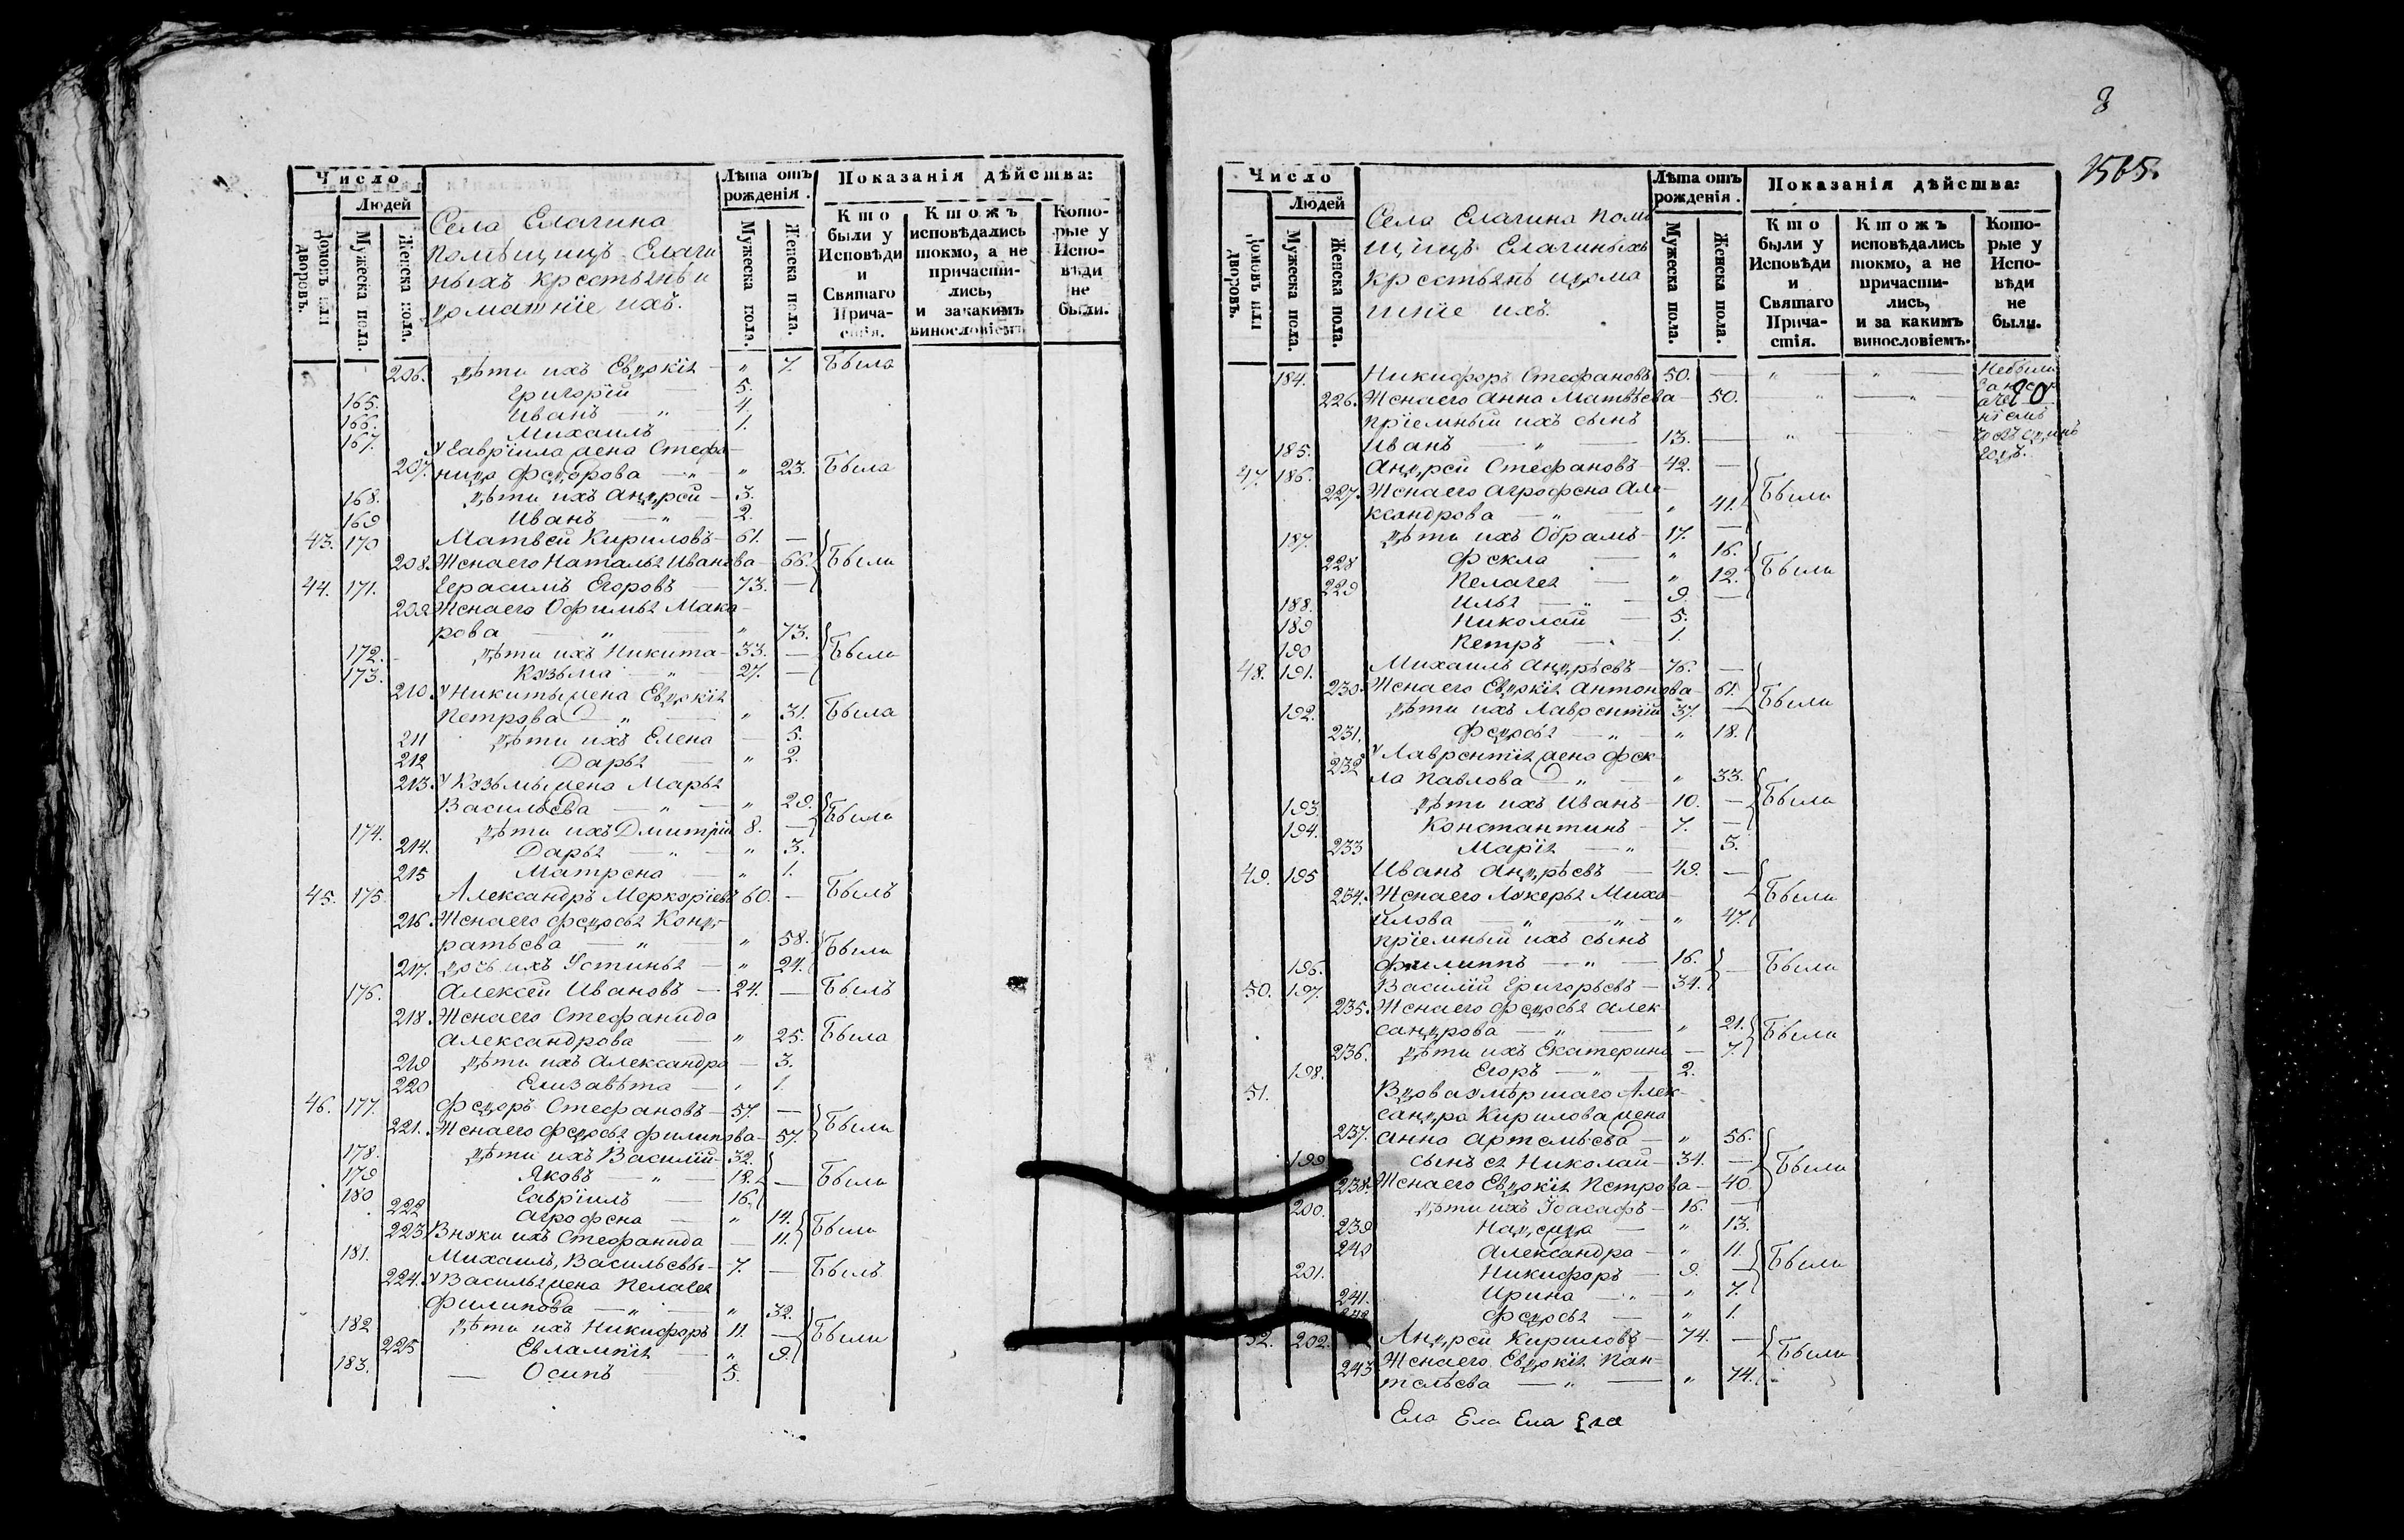 Число
Людей
Домовъ или дворовъ.
Мужеска пола.
Женска пола.
Села Елагина
помѣщицъ Елаги
ныхъ крестьянъ и
домашніе ихъ.
Лѣта отъ рожденія.
Мужеска пола.
Женска пола.
Показанія дѣйства:
Кто были у Исповѣди и Святаго Причастія.
Ктожъ исповѣдались токмо, а не причастились, и закакимъ винословіемъ
Которые у Исповѣди не были.
206. дѣти ихъ Евдокія — „ 7. Была
165. Григорій — 5.
166. Иванъ „ 4.
167. Михаилъ — 1.
У Гавріила жена Стефа-
207. нида Федорова — „ „ 23. Была
168. дѣти ихъ Андрей — 3.
169 Иванъ — „ — 2.
43. 170 Матвей Кириловъ — 61. —
208. Жена его Наталья Иванова — 66. Были
44. 171. Герасимъ Егоровъ — 73. —
209 Жена его Офимья Мака-
рова — „ — „ 73.
172. дѣти ихъ Никита — 33. — Были
173. Кузьма — „ — 27. —
210. У Никиты жена Евдокія
Петрова — „ — „ 31. Была
211 дѣти ихъ Елена — 5.
212 Дарья — „ 2.
213. У Кузьмы жена Марья
Васильева — „ — „ 29.
174. дѣти ихъ Дмитрій 8. — Были
214. Дарья — „ — „ 3.
215 Матрена — „ 1.
45. 175 Александръ Меркурьевъ 60. — Былъ
216. Жена его Федосья Конд-
ратьева — „ — „ 58.
217. дочь ихъ Устинья — „ 24. Были
176. Алексей Ивановъ — 24. — Былъ
218. Жена его Стефанида
Александрова — „ 25. Была
219 дѣти ихъ Александра — 3.
220 Елизавѣта — „ 1.
46. 177. Федоръ Стефановъ — 57. —
221. Жена его Федосья Филипова — 57. Были
178. дѣти ихъ Василій — 32.
179 Яковъ — „ — 18. — Были
180 Гавріилъ — 16.
222 Агрофена — „ 14.
223 Внуки ихъ Стефанида — 11. Были
181. Михаилъ, Васильевы — 7. — Былъ
224. У Василья жена Пелагея
Филипова — „ — „ 32.
182 дѣти ихъ Никифоръ 11. — Были
225 Евлампія — „ 9.
183. — Осипъ — 5.
8
1565.
Число
Людей
Домовъ или дворовъ.
Мужеска пола.
Женска пола.
Села Елагина помѣ
щицъ Елагиныхъ
крестьянъ и дома
шніе ихъ.
Лѣта отъ рожденія.
Мужеска пола.
Женска пола.
Показанія дѣйства:
Кто были у Исповѣди и Святаго Причастія.
Ктожъ исповѣдались токмо, а не причастились, и за какимъ винословіемъ.
Которые у Исповѣди не были.
184. Никифоръ Стефановъ 50. — „ — „ — Небыли
226. Жена его Анна Матвѣева — 50. „ — „ —
пріемный ихъ сынъ
185. Иванъ — „ — 13. — „ — „
47. 186. Андрей Стефановъ — 42. —
227. Жена его Агрофена Але-
ксандрова — „ — „ 41. Были
187. дѣти ихъ Обрамъ — 17. —
228 Фекла — „ 16.
229 Пелагея — „ 12. Были
188. Илья — „ — 9. —
189 Николай — 5.
190 Петръ — „ 1.
48. 191. Михаилъ Андрѣевъ — 76. —
230. Жена его Евдокія Антонова — 61. Были
192. дѣти ихъ Лаврентій 37. —
231. Федосья — „ — „ 18.
232 У Лаврентія жена Фек-
ла Павлова — „ — „ 33.
193. дѣти ихъ Иванъ — 10. — Были
194. Константинъ — 7. —
233 Марія — „ — 3.
49. 195 Иванъ Андрѣевъ — 49. —
234. Жена его Лукерья Миха- Были
йлова — „ — „ — „ 47.
пріемный ихъ сынъ
196. Филиппъ — „ — 16. — Были
50. 197. Василій Григорьевъ — 34.
235. Жена его Федосья Алек
сандрова — „ — „ 21. Были
236. дѣти ихъ Екатерина — 7.
198. Егоръ — „ — 2.
51. Вдова умѣршаго Алек-
сандра Кирилова жена
237. Анна Артемьева — „ 56.
199 сынъ ея Николай — 34. — Были
238. Жена его Евдокія Петрова — 40.
200. дѣти ихъ Іоасафъ — 16. —
239 Надежда — „ 13.
240 Александра — „ 11. Были
201. Никифоръ — 9. —
241. Ирина — „ — „ 7.
242 Федосья — „ 1.
52. 202. Андрей Кириловъ — 74. —
243 Жена его Евдокія Пан- Были
телѣева — „ — „ 74.
Ела Ела Ела Ела